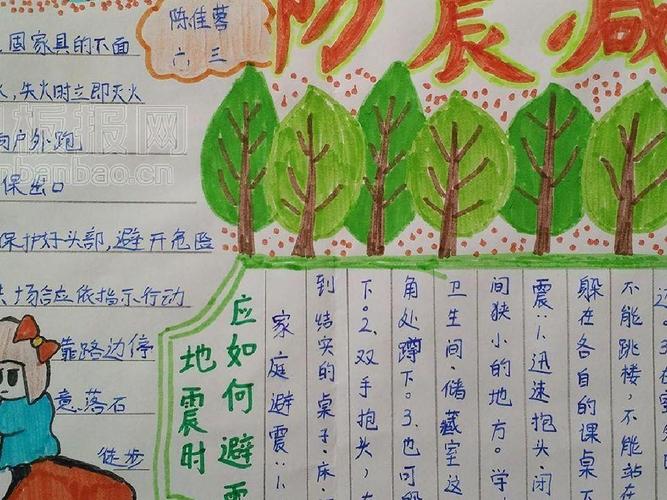 陈佳蓉
六、三
防震减
固家具的下面
火,失火时立即灭火
向户外跑
保出口
保护好头部,避开危险
场合应依指示行动
靠路边停
意落石
徒步
板报网
banbao.cn
应如何避震
地震时
家庭避震:1.
到结实的桌子、床
下。2、双手抱头,在
角处蹲下。3、也可
卫生间、储藏室这
间狭小的地方。学
震:1.迅速抱头、闭
躲在各自的课桌下
不能跳楼,不能站在